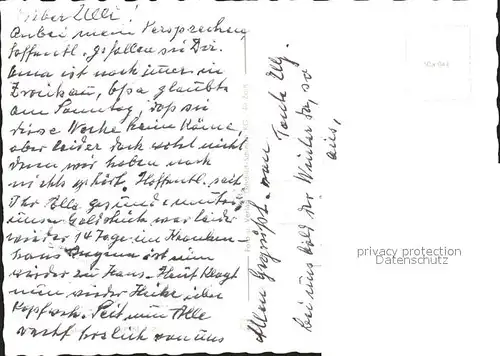 Lieber Ulli!
Anbei mein Versprechen,
hoffentl. gefallen sie Dir.
Oma ist noch immer in
Zwickau, Opa glaubte
am Sonntag, daß sie
diese Woche heim käme,
aber leider doch wohl nicht
denn wir haben noch
nichts gehört. Hoffentl. seit
Ihr Alle gesund u. munter
unser Goldstück war leider
wieder 14 Tage im Kranken-
haus
ist nun
wieder zu Haus. Heut klagt
nun wieder über
Kopfweh. Seit nun Alle
recht herzlich von uns
Allen gegrüßt. von Tante Elly.
Bei uns sieht der Winter so
aus,
privacy protection
DATENSCHUTZ